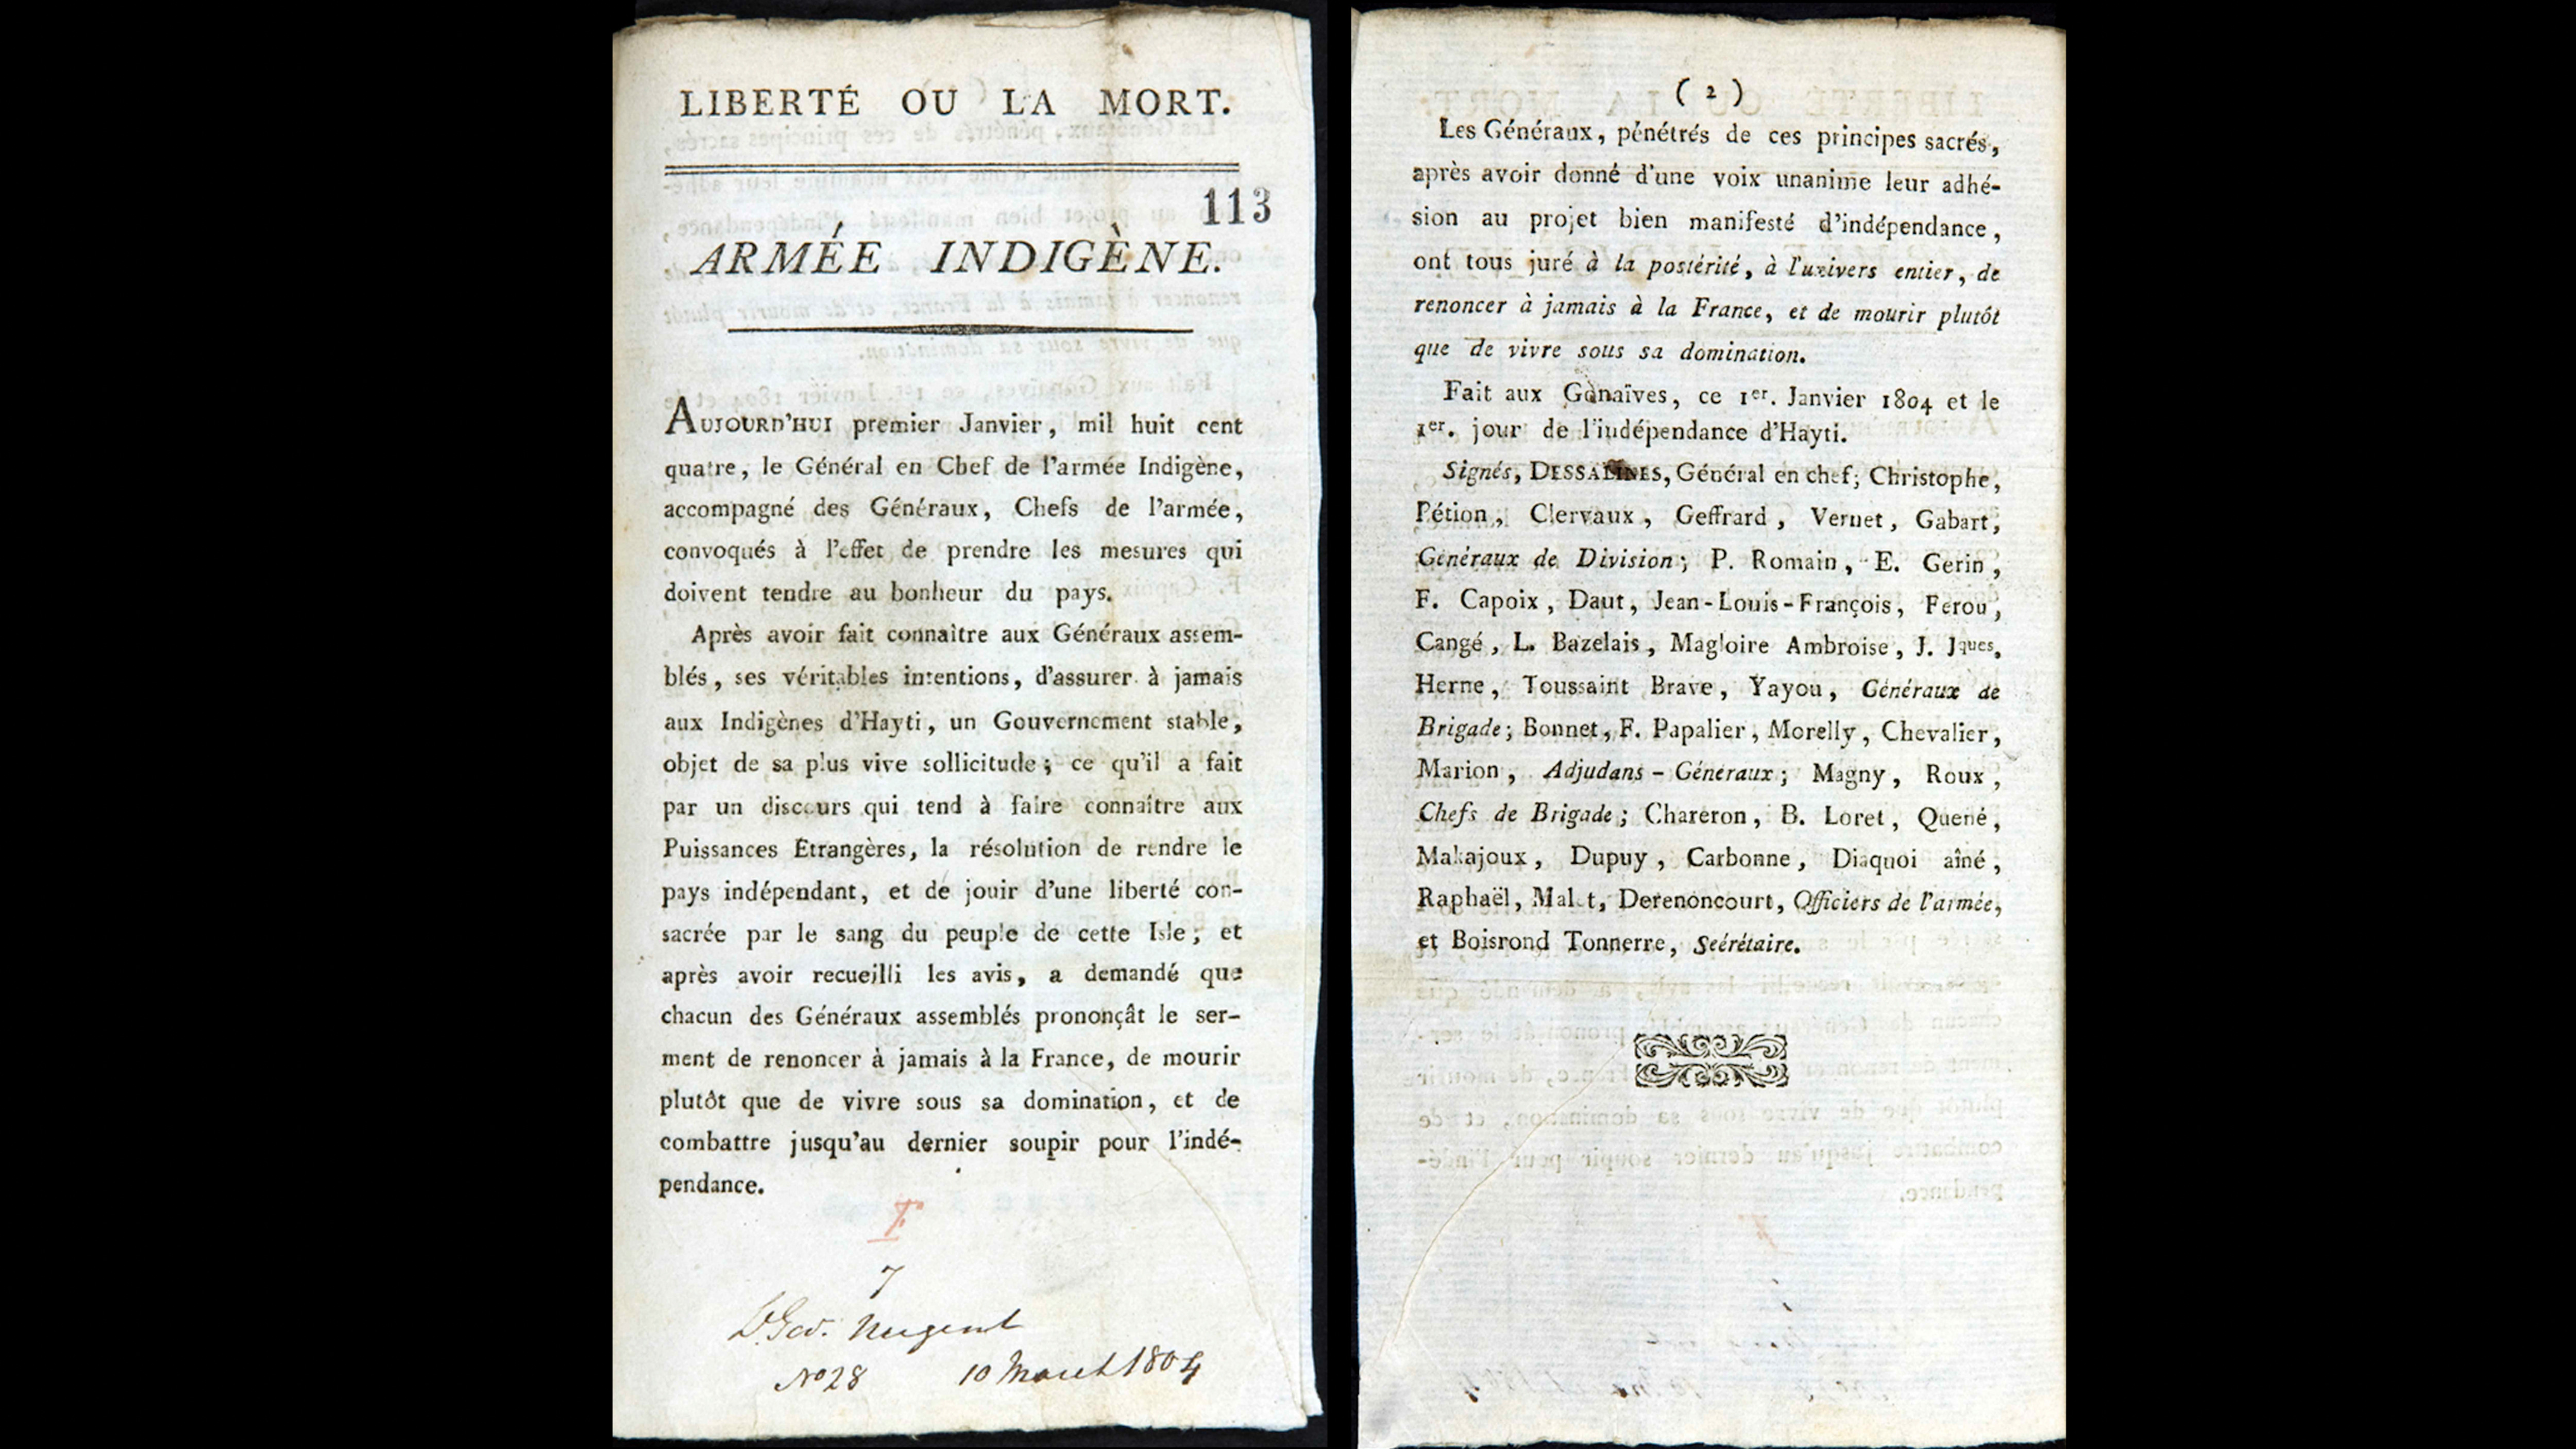 LIBERTÉ OU LA MORT.
113
ARMÉE INDIGÈNE.
AUJOURD'HUI premier Janvier, mil huit cent
quatre, le Général en Chef de l'armée Indigène,
accompagné des Généraux, Chefs de l'armée,
convoqués à l'effet de prendre les mesures qui
doivent tendre au bonheur du pays.
Après avoir fait connaître aux Généraux assem-
blés, ses véritables intentions, d'assurer à jamais
aux Indigènes d'Hayti, un Gouvernement stable,
objet de sa plus vive sollicitude; ce qu'il a fait
par un discours qui tend à faire connaître aux
Puissances Etrangères, la résolution de rendre le
pays indépendant, et de jouir d'une liberté con-
sacrée par le sang du peuple de cette Isle; et
après avoir recueilli les avis, a demandé que
chacun des Généraux assemblés prononçât le ser-
ment de renoncer à jamais à la France, de mourir
plutôt que de vivre sous sa domination, et de
combattre jusqu'au dernier soupir pour l'indé-
pendance.
F
7
Lt Gov. Nugent
No 28 10 March 1804
(2)
Les Généraux, pénétrés de ces principes sacrés,
après avoir donné d'une voix unanime leur adhé-
sion au projet bien manifesté d'indépendance,
ont tous juré à la postérité, à l'univers entier, de
renoncer à jamais à la France, et de mourir plutôt
que de vivre sous sa domination.
Fait aux Gonaïves, ce 1er. Janvier 1804 et le
1er. jour de l'indépendance d'Hayti.
Signés, DESSALINES, Général en chef; Christophe,
Pétion, Clervaux, Geffrard, Vernet, Gabart,
Généraux de Division; P. Romain, E. Gerin,
F. Capoix, Daut, Jean-Louis-François, Ferou,
Cangé, L. Bazelais, Magloire Ambroise, J. Jques.
Herne, Toussaint Brave, Yayou, Généraux de
Brigade; Bonnet, F. Papalier, Morelly, Chevalier,
Marion, Adjudans-Généraux; Magny, Roux,
Chefs de Brigade; Chareron, B. Loret, Quené,
Makajoux, Dupuy, Carbonne, Diaquoi aîné,
Raphaël, Malet, Derenoncourt, Officiers de l'armée,
et Boisrond Tonnerre, Secrétaire.